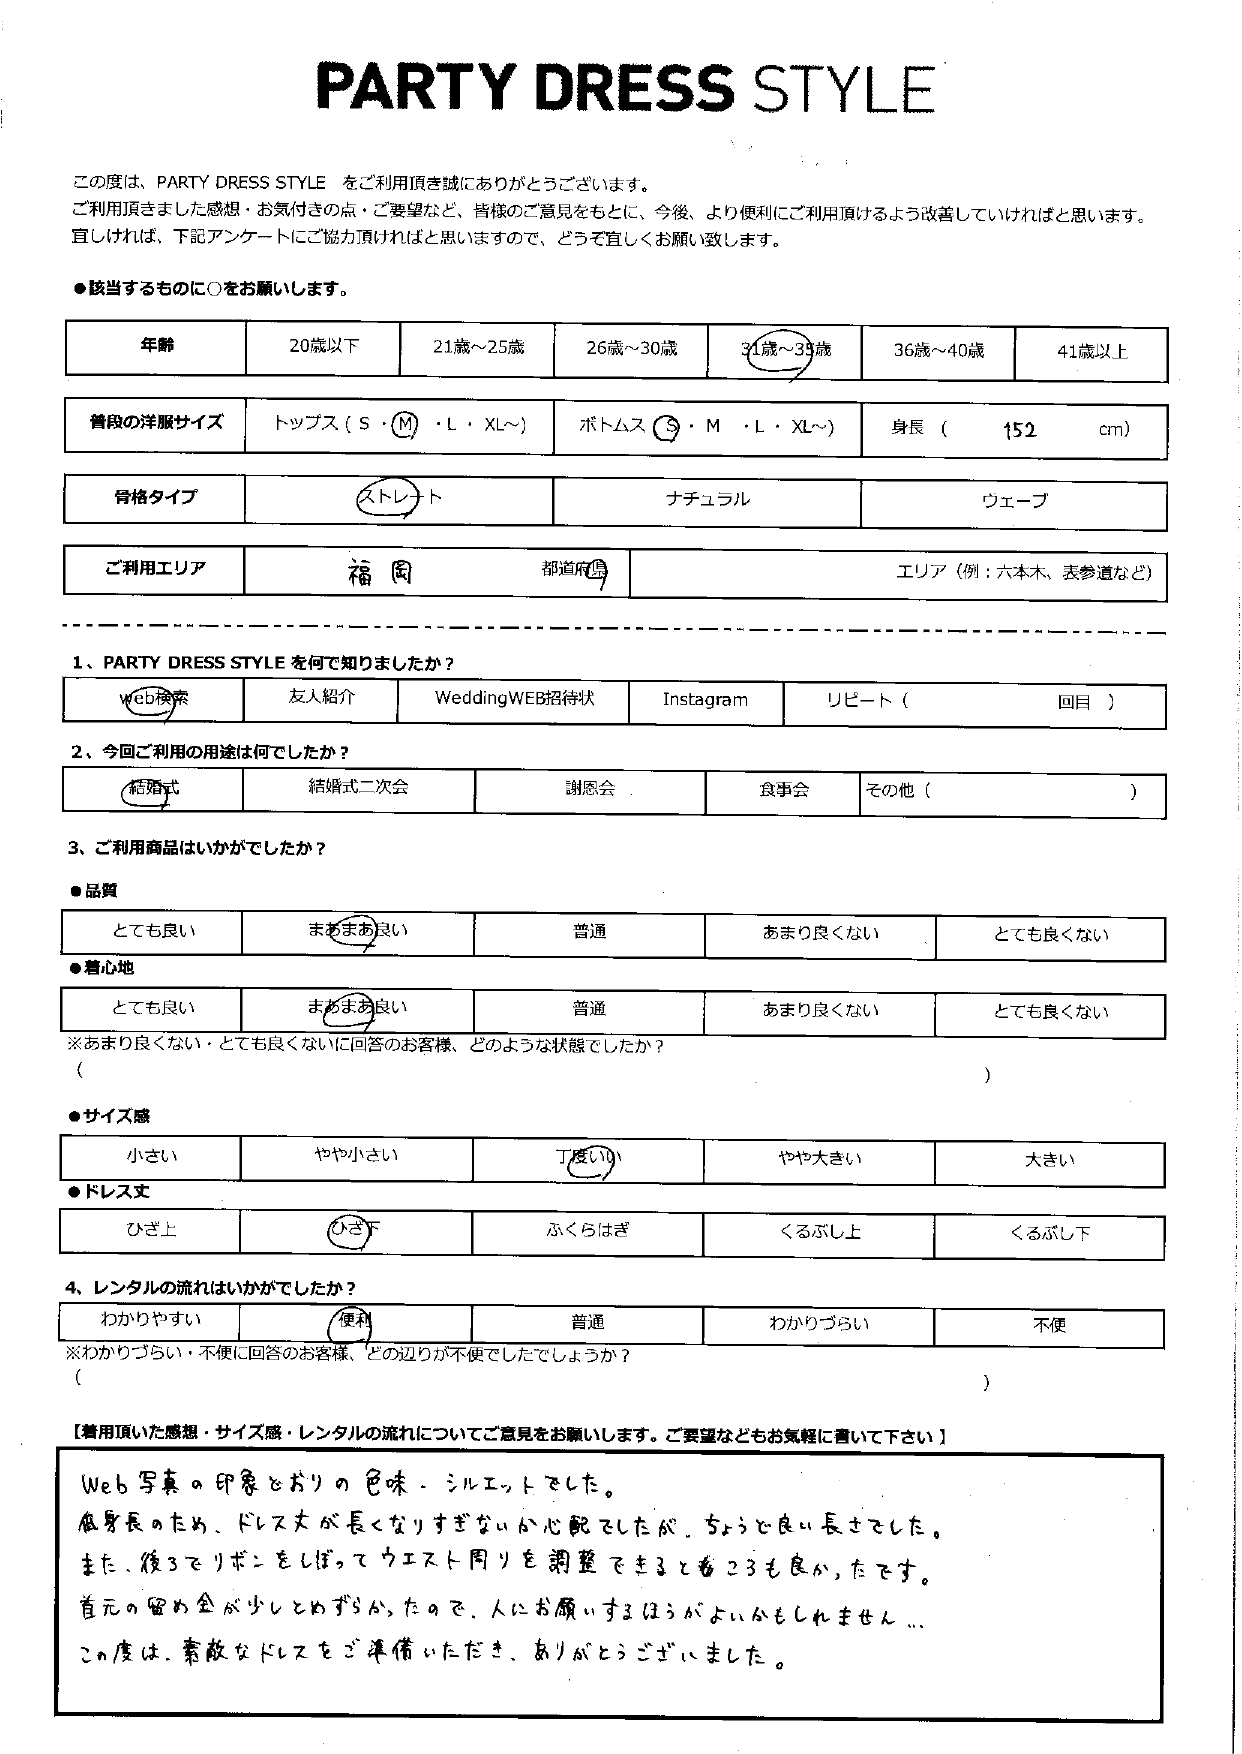 PARTY DRESS STYLE
この度は、PARTY DRESS STYLE をご利用頂き誠にありがとうございます。
ご利用頂きました感想・お気付きの点・ご要望など、皆様のご意見をもとに、今後、より便利にご利用頂けるよう改善していければと思います。
宜しければ、下記アンケートにご協力頂ければと思いますので、どうぞ宜しくお願い致します。
●該当するものに○をお願いします。
年齢 20歳以下 21歳～25歳 26歳～30歳 31歳～35歳 36歳～40歳 41歳以上
普段の洋服サイズ トップス ( S ・ M ・ L ・ XL～) ボトムス ( S ・ M ・ L ・ XL～) 身長 ( 152 cm)
骨格タイプ ストレート ナチュラル ウェーブ
ご利用エリア 福岡 都道府県 エリア（例：六本木、表参道など）
1、PARTY DRESS STYLE を何で知りましたか？
web検索 友人紹介 WeddingWEB招待状 Instagram リピート（ 回目 ）
2、今回ご利用の用途は何でしたか？
結婚式 結婚式二次会 謝恩会 食事会 その他（ ）
3、ご利用商品はいかがでしたか？
●品質
とても良い まあまあ良い 普通 あまり良くない とても良くない
●着心地
とても良い まあまあ良い 普通 あまり良くない とても良くない
※あまり良くない・とても良くないに回答のお客様、どのような状態でしたか？
（ ）
●サイズ感
小さい やや小さい 丁度いい やや大きい 大きい
●ドレス丈
ひざ上 ひざ下 ふくらはぎ くるぶし上 くるぶし下
4、レンタルの流れはいかがでしたか？
わかりやすい 便利 普通 わかりづらい 不便
※わかりづらい・不便に回答のお客様、どの辺りが不便でしたでしょうか？
（ ）
【着用頂いた感想・サイズ感・レンタルの流れについてご意見をお願いします。ご要望などもお気軽に書いて下さい】
Web写真の印象どおりの色味・シルエットでした。
低身長のため、ドレス丈が長くなりすぎないか心配でしたが、ちょうど良い長さでした。
また、後ろでリボンをしぼってウエスト周りを調整できるところも良かったです。
首元の留め金が少しとめずらかったので、人にお願いするほうがよいかもしれません…
この度は、素敵なドレスをご準備いただき、ありがとうございました。